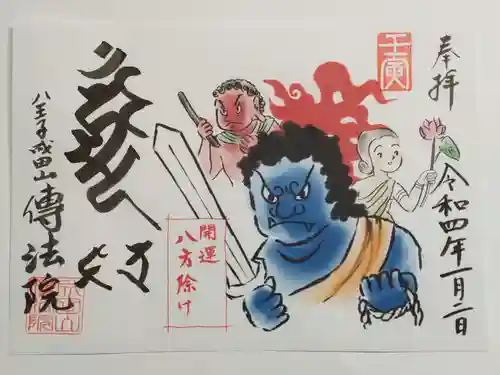 奉拝
壬寅
令和四年一月二日
開運
八方除け
八王子成田山傳法院